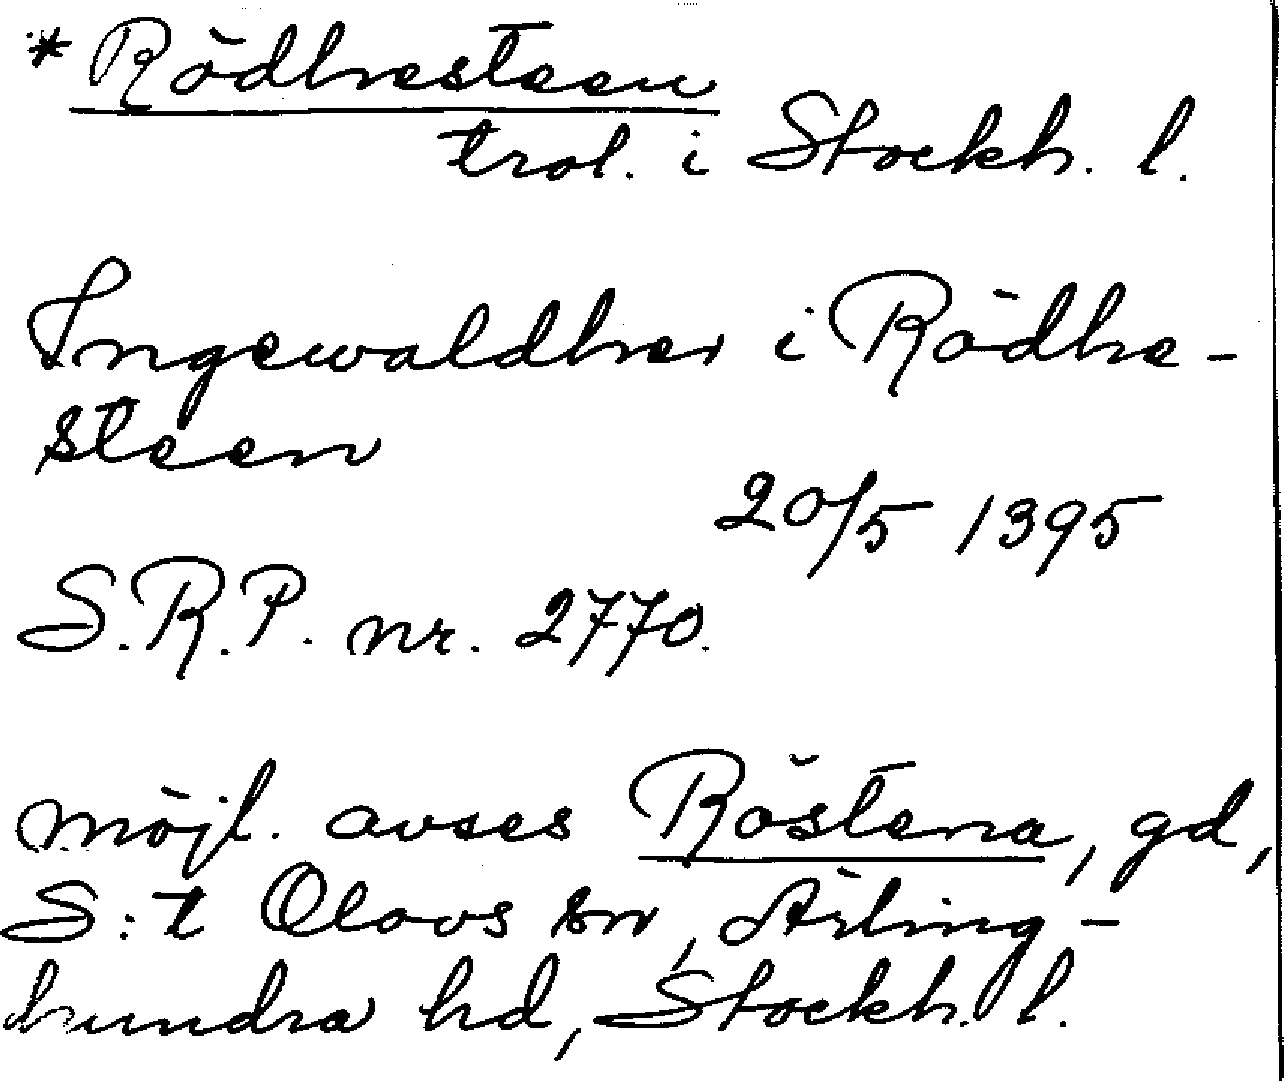 * Rödhesteen
trol. i Stockh. l.
Ingewaldher i Rödhe-
steen
20/5 1395
S.R.P. nr. 2770.
möjl. avses Röstena, gd,
S:t Olovs sn, Ärling-
hundra hd, Stockh. l.